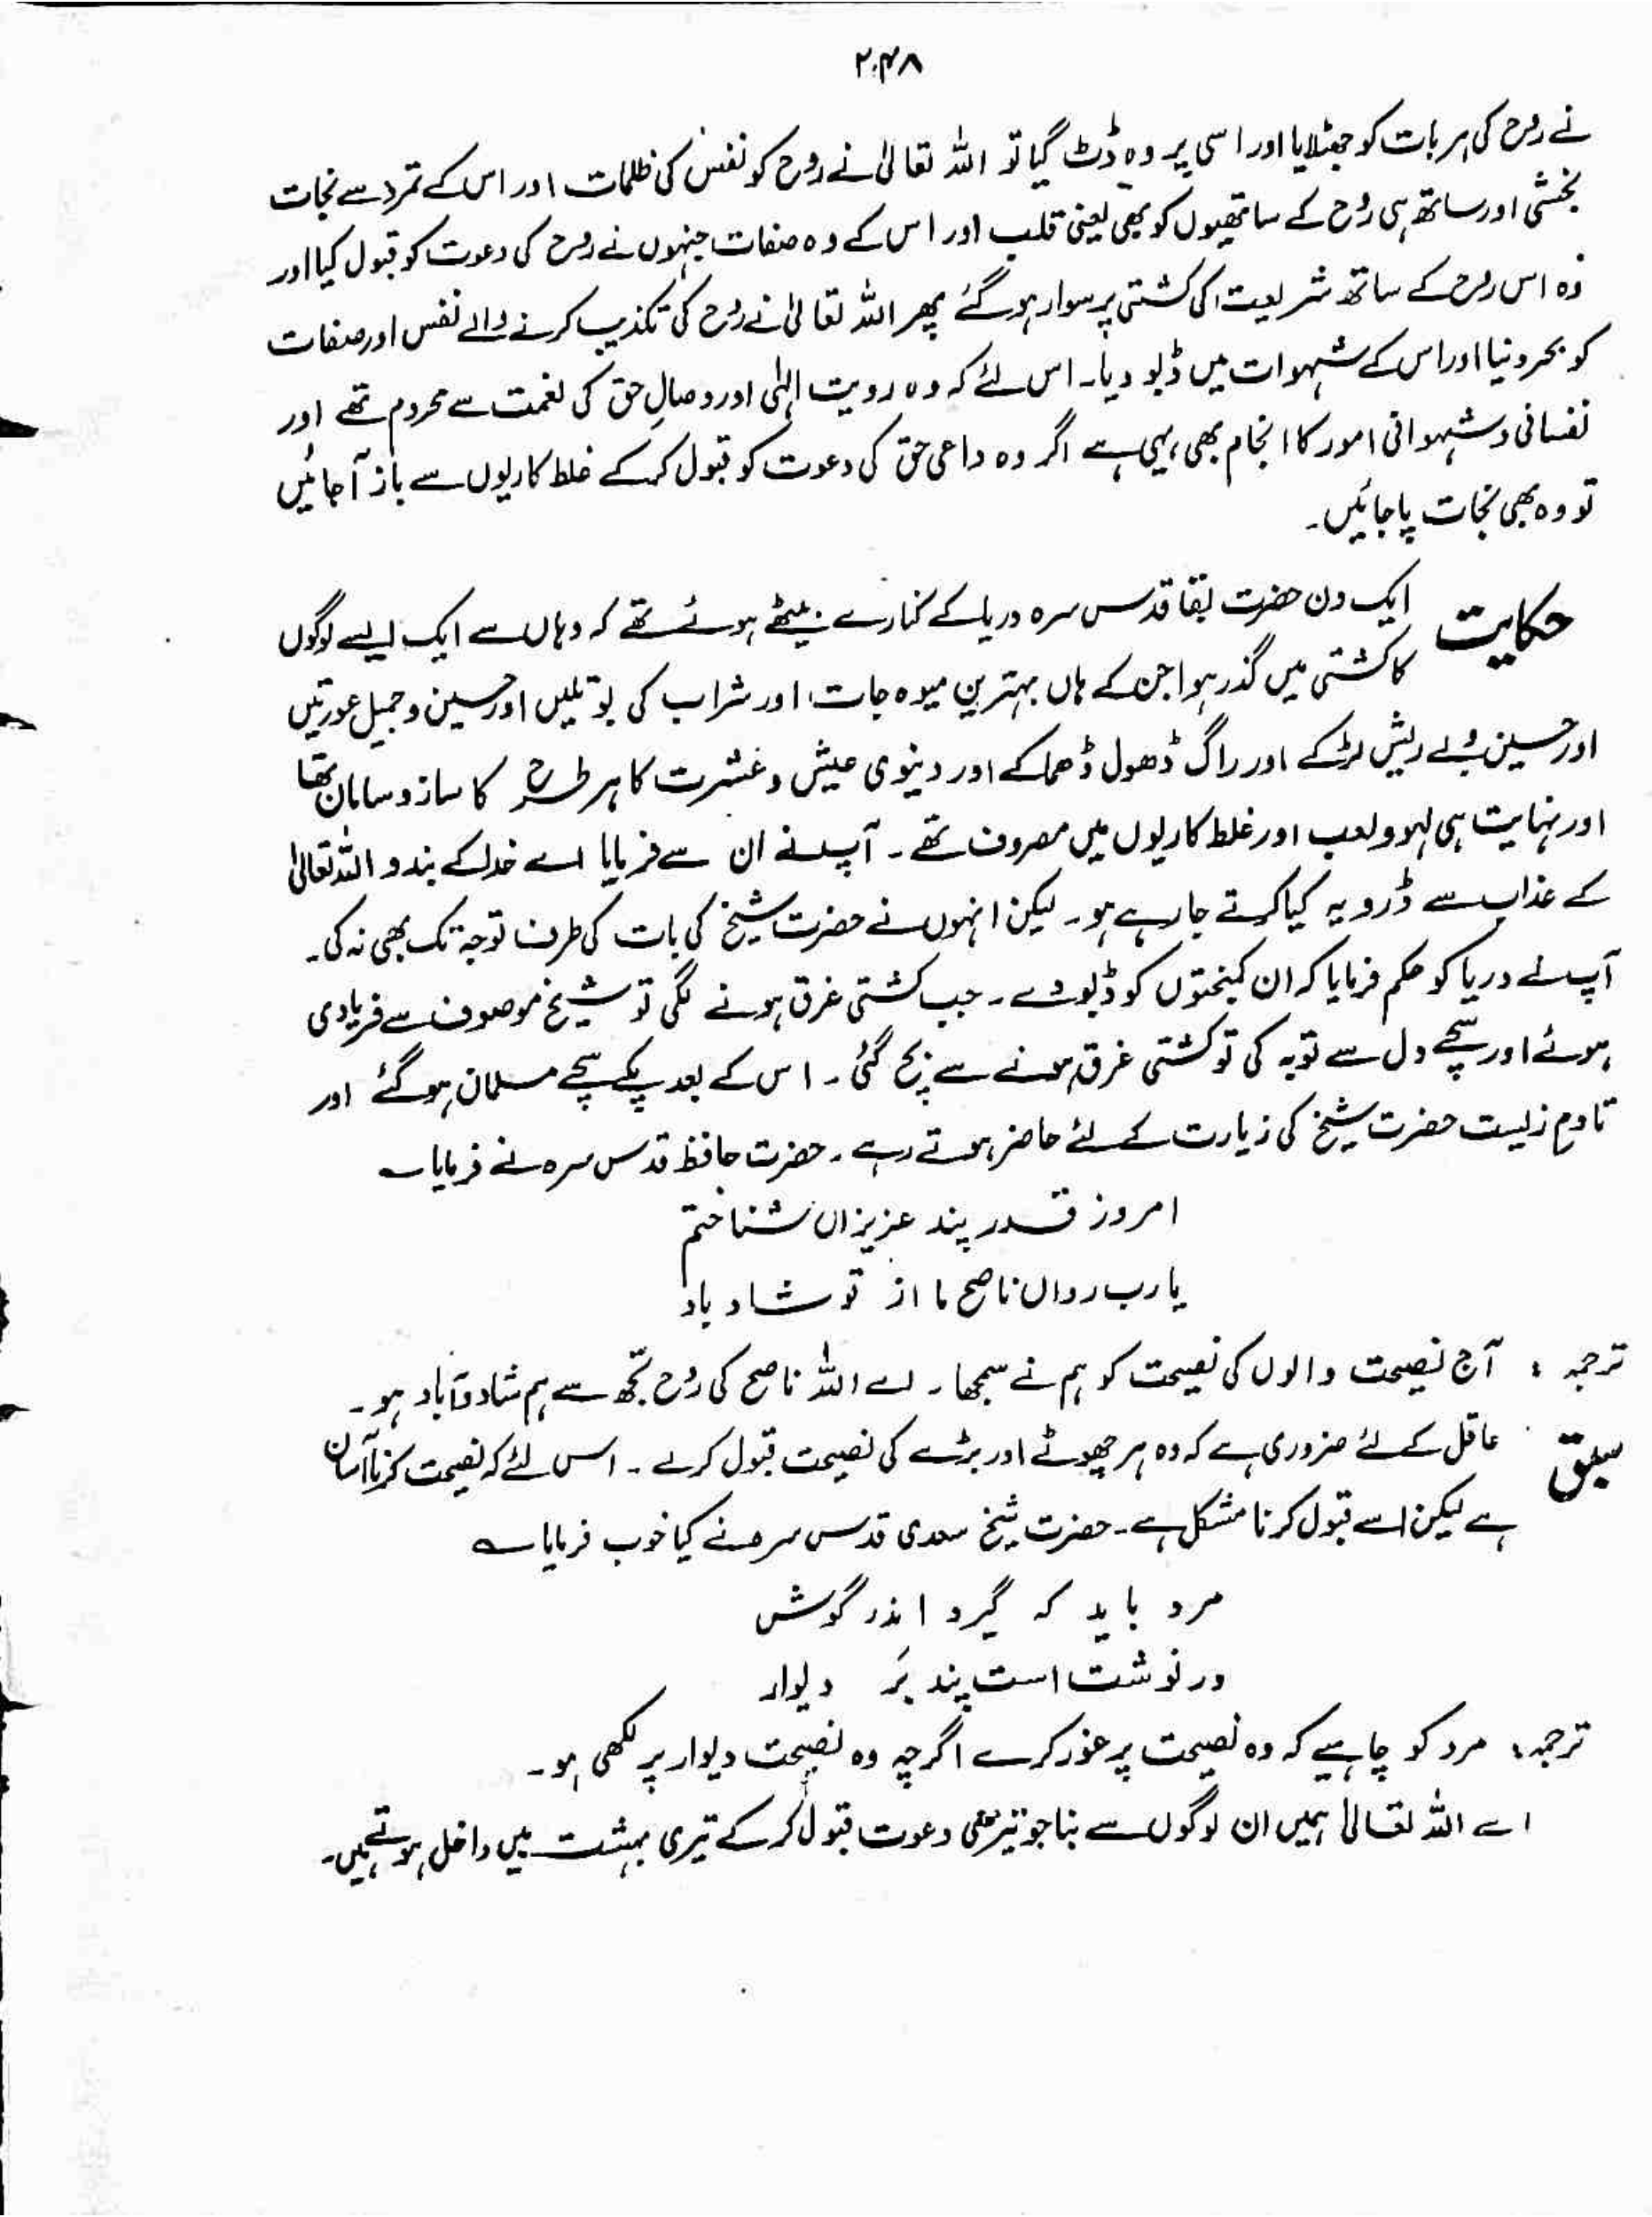 ۲۴۸
نے روح کی ہر بات کو جھٹلایا اور اسی پر وہ ڈٹ گیا تو اللہ تعالیٰ نے روح کو نفس کی ظلمات اور اس کے تمرد سے نجات
بخشی اور ساتھ ہی روح کے ساتھیوں کو بھی یعنی قلب اور اس کے وہ صفات جنہوں نے روح کی دعوت کو قبول کیا اور
وہ اس روح کے ساتھ شریعت کی کشتی پر سوار ہو گئے پھر اللہ تعالیٰ نے روح کی تکذیب کرنے والے نفس اور صفات
کو بحر دنیا اور اس کے شہوات میں ڈبو دیا۔ اس لئے کہ وہ رویت الٰہی اور وصالِ حق کی نعمت سے محروم تھے اور
نفسانی و شہوانی امور کا انجام بھی یہی ہے اگر وہ داعی حق کی دعوت کو قبول کر کے غلط کاریوں سے باز آ جائیں
تو وہ بھی نجات پا جائیں۔
حکایت ایک دن حضرت بقا قدس سرہ دریا کے کنارے بیٹھے ہوئے تھے کہ وہاں سے ایک ایسے لوگوں
کا کشتی میں گذر ہوا جن کے ہاں بہترین میوہ جات اور شراب کی بوتلیں اور حسین و جمیل عورتیں
اور حسین بے ریش لڑکے اور راگ ڈھول ڈھماکے اور دینوی عیش و عشرت کا ہر طرح کا ساز و سامان تھا
اور نہایت ہی لہو و لعب اور غلط کاریوں میں مصروف تھے۔ آپ نے ان سے فرمایا اے خدا کے بندو اللہ تعالیٰ
کے عذاب سے ڈرو یہ کیا کرتے جا رہے ہو۔ لیکن انہوں نے حضرت شیخ کی بات کی طرف توجہ تک بھی نہ کی۔
آپ نے دریا کو حکم فرمایا کہ ان کمبختوں کو ڈبو دے۔ جب کشتی غرق ہونے لگی تو شیخ موصوف سے فریادی
ہوئے اور سچے دل سے توبہ کی تو کشتی غرق ہونے سے بچ گئی۔ اس کے بعد پکے سچے مسلمان ہو گئے اور
تا دمِ زیست حضرت شیخ کی زیارت کے لئے حاضر ہوتے رہے۔ حضرت حافظ قدس سرہ نے فرمایا ؎
امروز قدر پند عزیزاں شناختم
یارب رواں ناصح ما از تو شاد باد
ترجمہ : آج نصیحت والوں کی نصیحت کو ہم نے سمجھا۔ اے اللہ ناصح کی روح تجھ سے ہم شاد و آباد ہو۔
سبق عاقل کے لئے ضروری ہے کہ وہ ہر چھوٹے اور بڑے کی نصیحت قبول کرے۔ اس لئے کہ نصیحت کرنا آسان
ہے لیکن اسے قبول کرنا مشکل ہے۔ حضرت شیخ سعدی قدس سرہ نے کیا خوب فرمایا ؎
مرد باید کہ گیرد اندر گوش
ور نوشت است پند بَر دیوار
ترجمہ : مرد کو چاہیے کہ وہ نصیحت پر غور کرے اگرچہ وہ نصیحت دیوار پر لکھی ہو۔
اے اللہ تعالیٰ ہمیں ان لوگوں سے بنا جو تیری دعوت قبول کر کے تیری بہشت میں داخل ہوتے ہیں۔